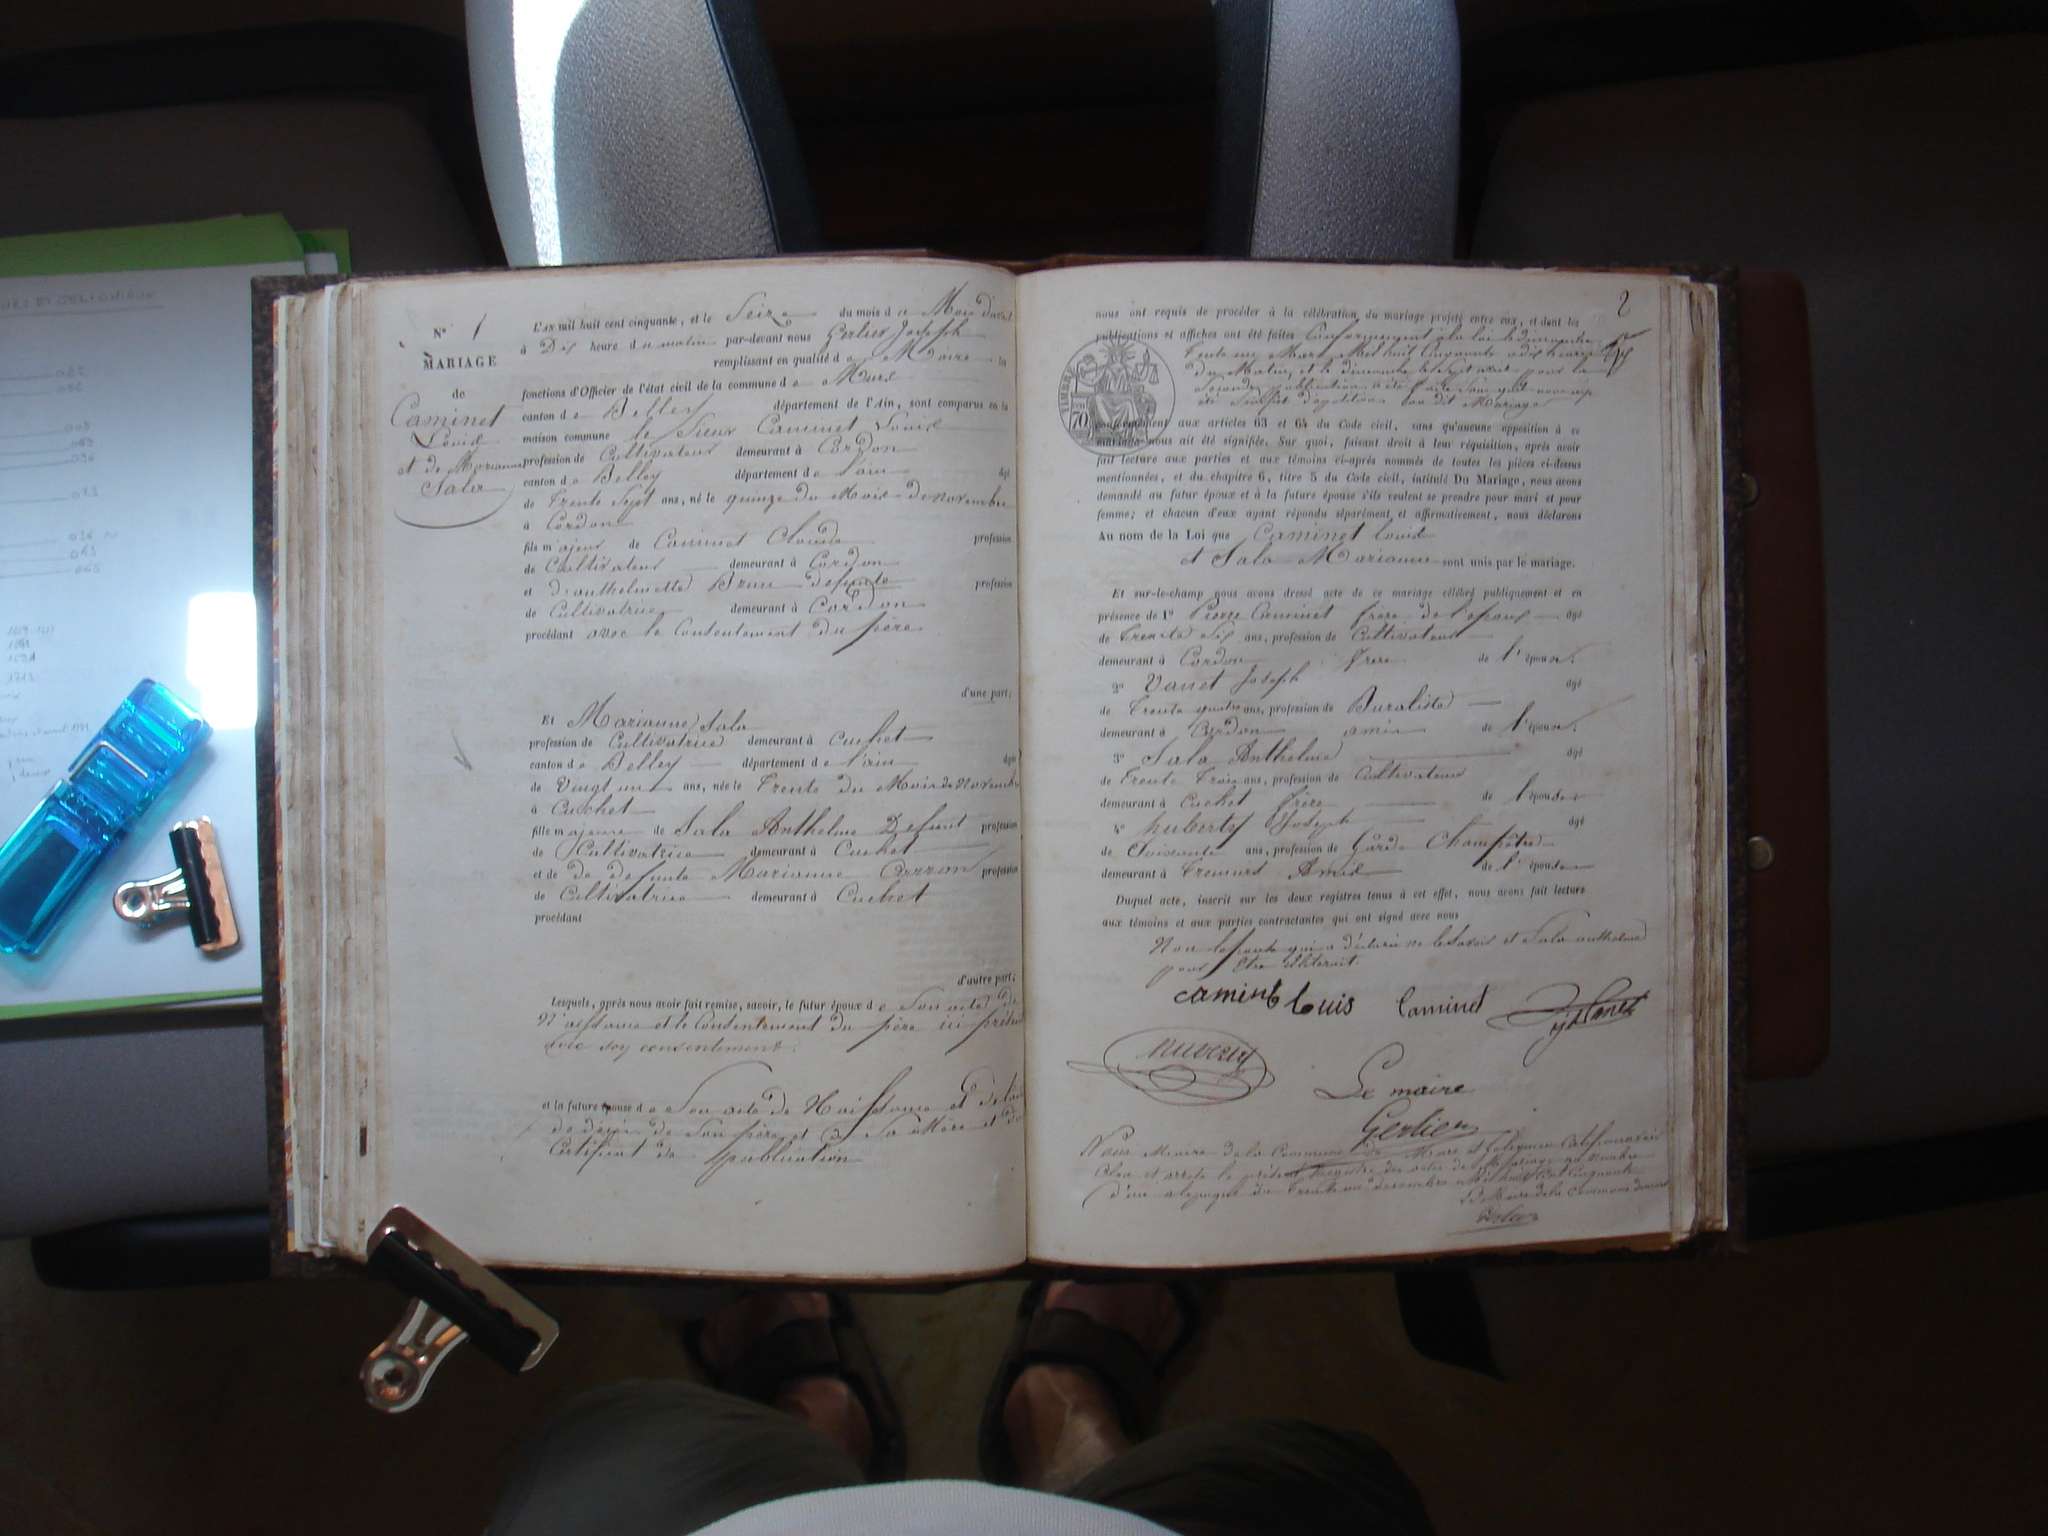 N° 1
MARIAGE
de
Caminet
Louis
et de Marianne
Sala
L'an mil huit cent cinquante, et le Seize du mois d'
à Dix heure du matin par-devant nous Gerlier Joseph
remplissant en qualité de Maire les
fonctions d'Officier de l'état civil de la commune de Murs
canton de Belley département de l'Ain, sont comparus en la
maison commune le Sieur Caminet Louis
profession de Cultivateur demeurant à Cordon
canton de Belley département de l'ain âgé
de trente Sept ans, né le quinze du Mois de novembre
à Cordon
fils majeur de Caminet Claude profession
de Cultivateur demeurant à Cordon
et d'anthelmette Brun defunte profession
de Cultivatrice demeurant à Cordon
procédant avec le Consentement du père
d'une part;
Et Marianne Sala
profession de Cultivatrice demeurant à Cuchet
canton de Belley département de l'ain âgé
de Vingt un ans, née le Trente du Mois de Novembre
à Cuchet
fille majeure de Sala Anthelme Defunt profession
de Cultivatrice demeurant à Cuchet
et de de defunte Marianne profession
de Cultivatrice demeurant à Cuchet
procédant
d'autre part;
Lesquels, après nous avoir fait remise, savoir, le futur époux de Son acte de
Naissance et le Consentement du père ici présent
avec son consentement.
et la future épouse de Son acte de Naissance et
de décès de Son père et de Sa Mère et de
Certificat de publication
2
nous ont requis de procéder à la célébration du mariage projeté entre eux, et dont les
publications et affiches ont été faites Conformément à la loi le dimanche
trente un Mars Mil huit Cinquante à dix heures
du Matin, et le dimanche Sept avril pour la
Seconde publication
TIMBRE
70
conformément aux articles 63 et 64 du Code civil, sans qu'aucune opposition à ce
mariage nous ait été signifiée. Sur quoi, faisant droit à leur réquisition, après avoir
fait lecture aux parties et aux témoins ci-après nommés de toutes les pièces ci-dessus
mentionnées, et du chapitre 6, titre 5 du Code civil, intitulé Du Mariage, nous avons
demandé au futur époux et à la future épouse s'ils veulent se prendre pour mari et pour
femme; et chacun d'eux ayant répondu séparément et affirmativement, nous déclarons
Au nom de la Loi que Caminet Louis
et Sala Marianne sont unis par le mariage.
Et sur-le-champ nous avons dressé acte de ce mariage célébré publiquement et en
présence de 1° Pierre Caminet frère de l'époux âgé
de trente Six ans, profession de Cultivateur
demeurant à Cordon frère de l'époux.
2° Vanet Joseph âgé
de trente quatre ans, profession de Buraliste
demeurant à Cordon amis de l'époux.
3° Sala Anthelme âgé
de trente Trois ans, profession de Cultivateur
demeurant à Cuchet frère de l'épouse
4° Joseph âgé
de Soixante ans, profession de Garde Champêtre
demeurant à Amis de l'épouse
Duquel acte, inscrit sur les deux registres tenus à cet effet, nous avons fait lecture
aux témoins et aux parties contractantes qui ont signé avec nous
Non l'épouse qui a déclaré ne le Savoir et Sala anthelme
pour être illiterait.
Caminet Luis Caminet
Le maire
Gerlier
Nous Maire de la Commune de Murs
Le Maire de la Commune de Murs
Gerlier